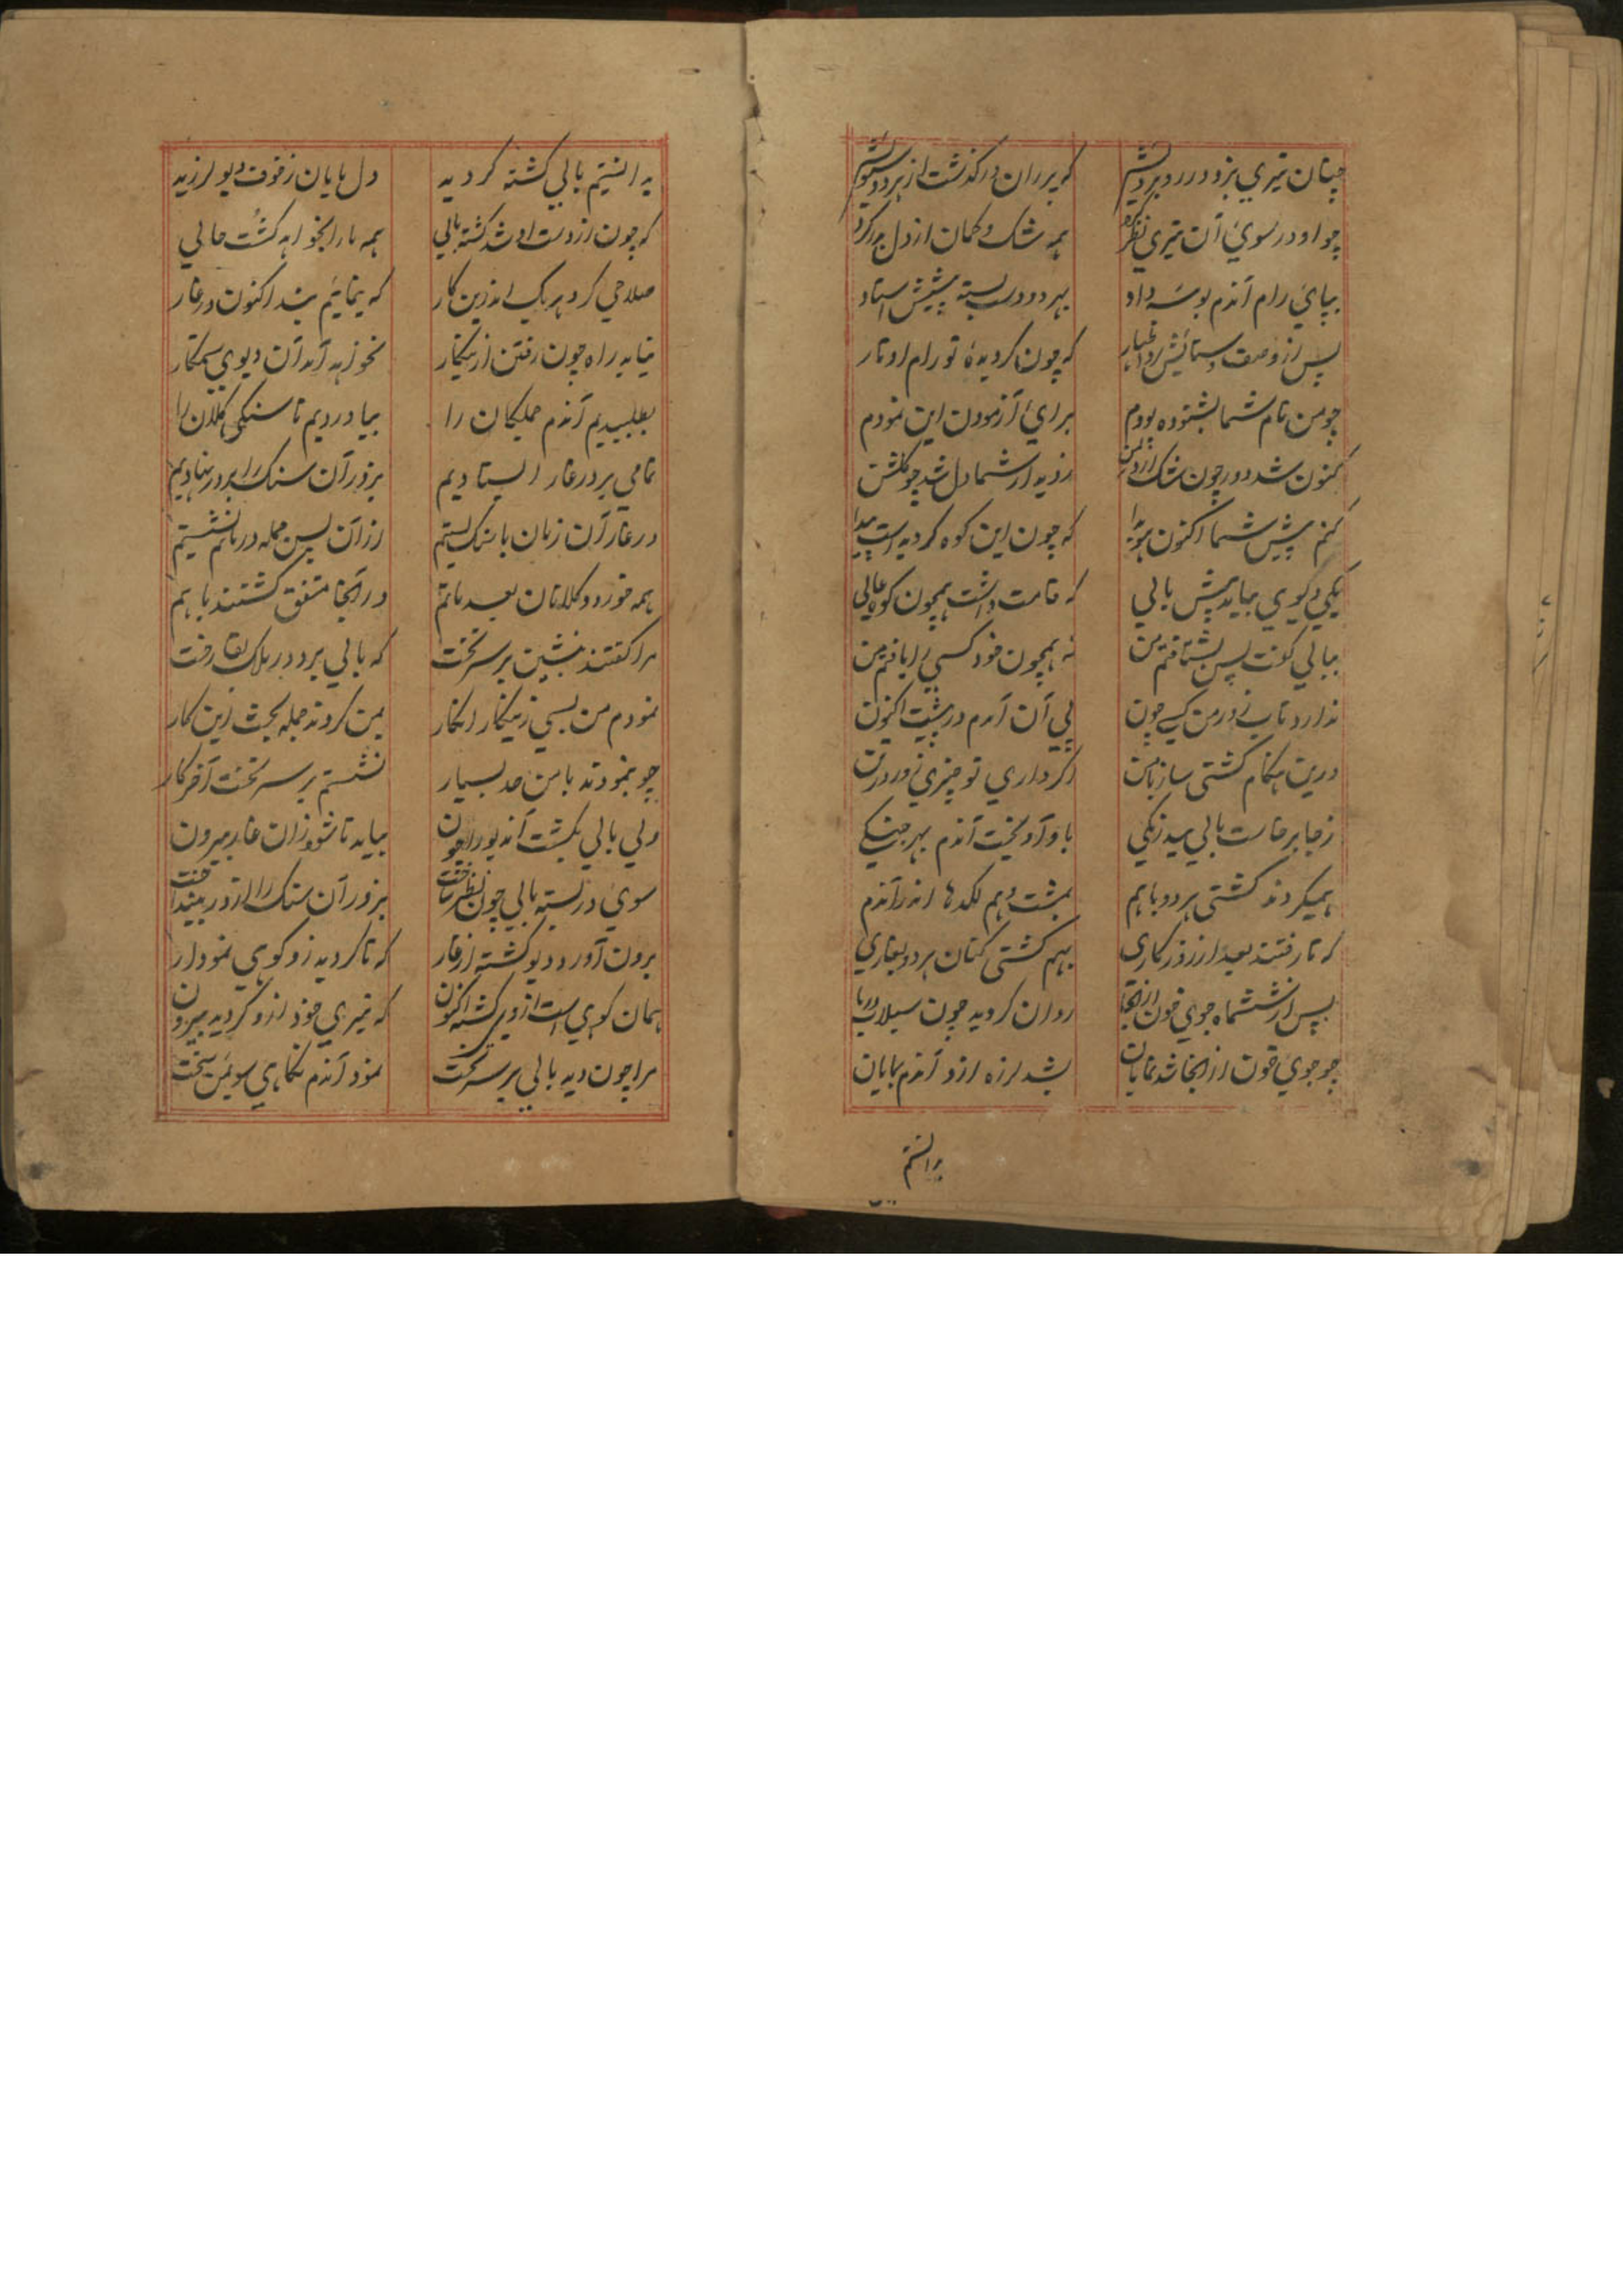 چنان تیری بزد در رد بردش که پرران درگذشت از هر دو سویش
چو او در سوئ آن تیری نظر کرد همه شک و گمان از دل بدر کرد
بپائ رام آندم بوسه داد بهر دو دست بسته پیشش استاد
پس از وصف و ستائش کرد اظهار که چون گردیدهٔ تو رام اوتار
چو من نام شما بشنوده بودم برائ آزمودن این نمودم
کنون شد دور چون شک از دل من ز دیدار شما دل شد چو گلشن
کنم پیش شما اکنون هویدا که چون این کوه گردید است پیدا
یکی دیوی بیامد پیش بالی که قامت داشت همچون کوه عالی
ببالی گفت پس بشتافتم من نه همچون خود کسی را یافتم من
ندارد تاب زور من کسی چون پی آن آمدم در پیشت اکنون
درین هنگام کشتی ساز با من اگر داری تو چیزی زور در تن
ز جا برخاست بالی بیدرنگی باو آویخت آندم بهر جنگی
همیکردند کشتی هر دو باهم بمشت و هم لکدها اندر آندم
که تا رفتند بعد از زور کاری بهم کشتی کنان هر دو بغاری
پس از ششماه جوی خون از آنجا روان گردید چون سیلاب دریا
چو جوئ خون از آنجا شد نمایان شد لرزه ازو آندم بمایان
بدانستم
بدانستیم بالی کشته گردید دل مایان ز خوف دیو لرزید
که چون از دست او شد کشته بالی همه ما را بخواهد کشت حالی
صلاحی کرد هر یک اندرین کار که بنمائیم بند اکنون در غار
نیابد راه چون رفتن ازینکار نخواهد آمد آن دیوی ستمکار
بطلبیدیم آندم جملگان را بیاوردیم تا سنگی کلان را
تمامی بر در غار ایستادیم بزور آن سنک را بر در نهادیم
در غار آن زمان با سنک بستیم از آن پس جمله در ماتم نشستیم
همه خورد و کلانان بعد ماتم در آنجا متفق گشتند باهم
مرا گفتند بنشین بر سر تخت که بالی برد در ملک بقا رخت
نمودم من بسی زینکار انکار بمن کردند جمله بحث زین کار
چو بنمودند با من جد بسیار نشستم بر سر تخت آخر کار
ولی بالی بکشت آن دیو را چون بیامد تا شود زان غار بیرون
سوئ در بسته بالی چون نظر ساخت بزور آن سنک را از در بینداخت
برون آورد دیو کشته از غار که تا گردید زو کوهی نمودار
همان کوهی است از دیو کشته اکنون که تیری خود ازو گردید بیرون
مرا چون دید بالی بر سر تخت نمود آندم نگاهی سوئ من سخت